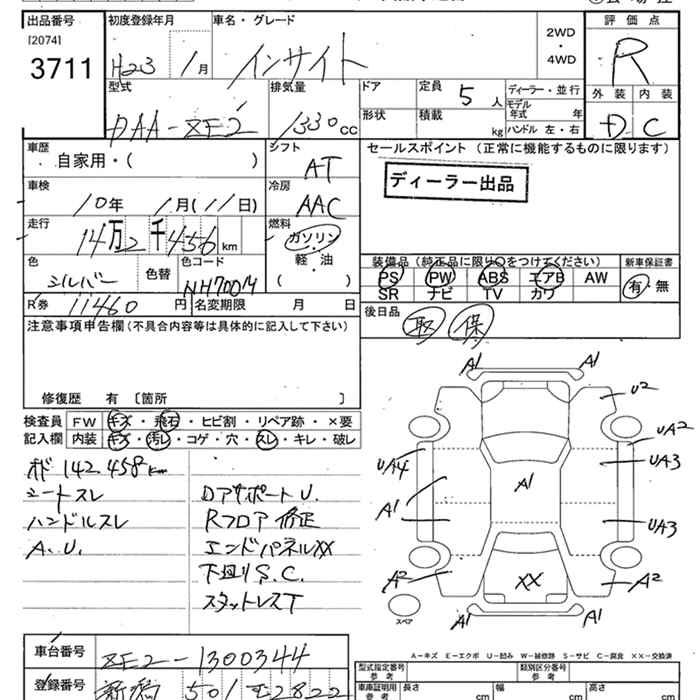 出品番号 初度登録年月 車名・グレード 2WD・4WD 評価点
[2074]
3711 H23 1月 インサイト R
型式 排気量 ドア 定員 5人 ディーラー・並行 外装 内装
DAA-ZE2 1330cc 形状 積載 kg モデル年式 年 D C
ハンドル 左・右
車歴 シフト セールスポイント (正常に機能するものに限ります)
自家用・( ) AT
ディーラー出品
車検 冷房
10年 1月(11日) AAC
走行 燃料
14万2千456km ガソリン
軽・油
( )
装備品(純正品に限り○をつけてください) 新車保証書
色 色替 色コード
シルバー NH700M
PS PW ABS エアB AW 有・無
SR ナビ TV カワ
R券 11460円 名変期限 月 日 後日品 取 保
注意事項申告欄(不具合内容等は具体的に記入して下さい)
修復歴 有 〔箇所 〕
検査員 FW キズ・飛石・ヒビ割・リペア跡・×要
記入欄 内装 キズ・汚レ・コゲ・穴・スレ・キレ・破レ
オド 142.458km
シートスレ
ハンドルスレ
A.U.
Dアサポート U.
Rフロア 修正
エンドパネルXX
下廻りS.C.
スタットレスT
A1 A1
U2
UA2
UA4 UA3
A1
A1 UA3
A2 XX A2
スペア A1 A1
A-キズ E-エクボ U-凹み W-補修跡 S-サビ C-腐食 XX-交換済
車台番号 ZE2-1300344
登録番号 新潟 501 2822
型式指定番号 参考 類別区分番号 参考
車庫証明用 参考 長さ cm 幅 cm 高さ cm